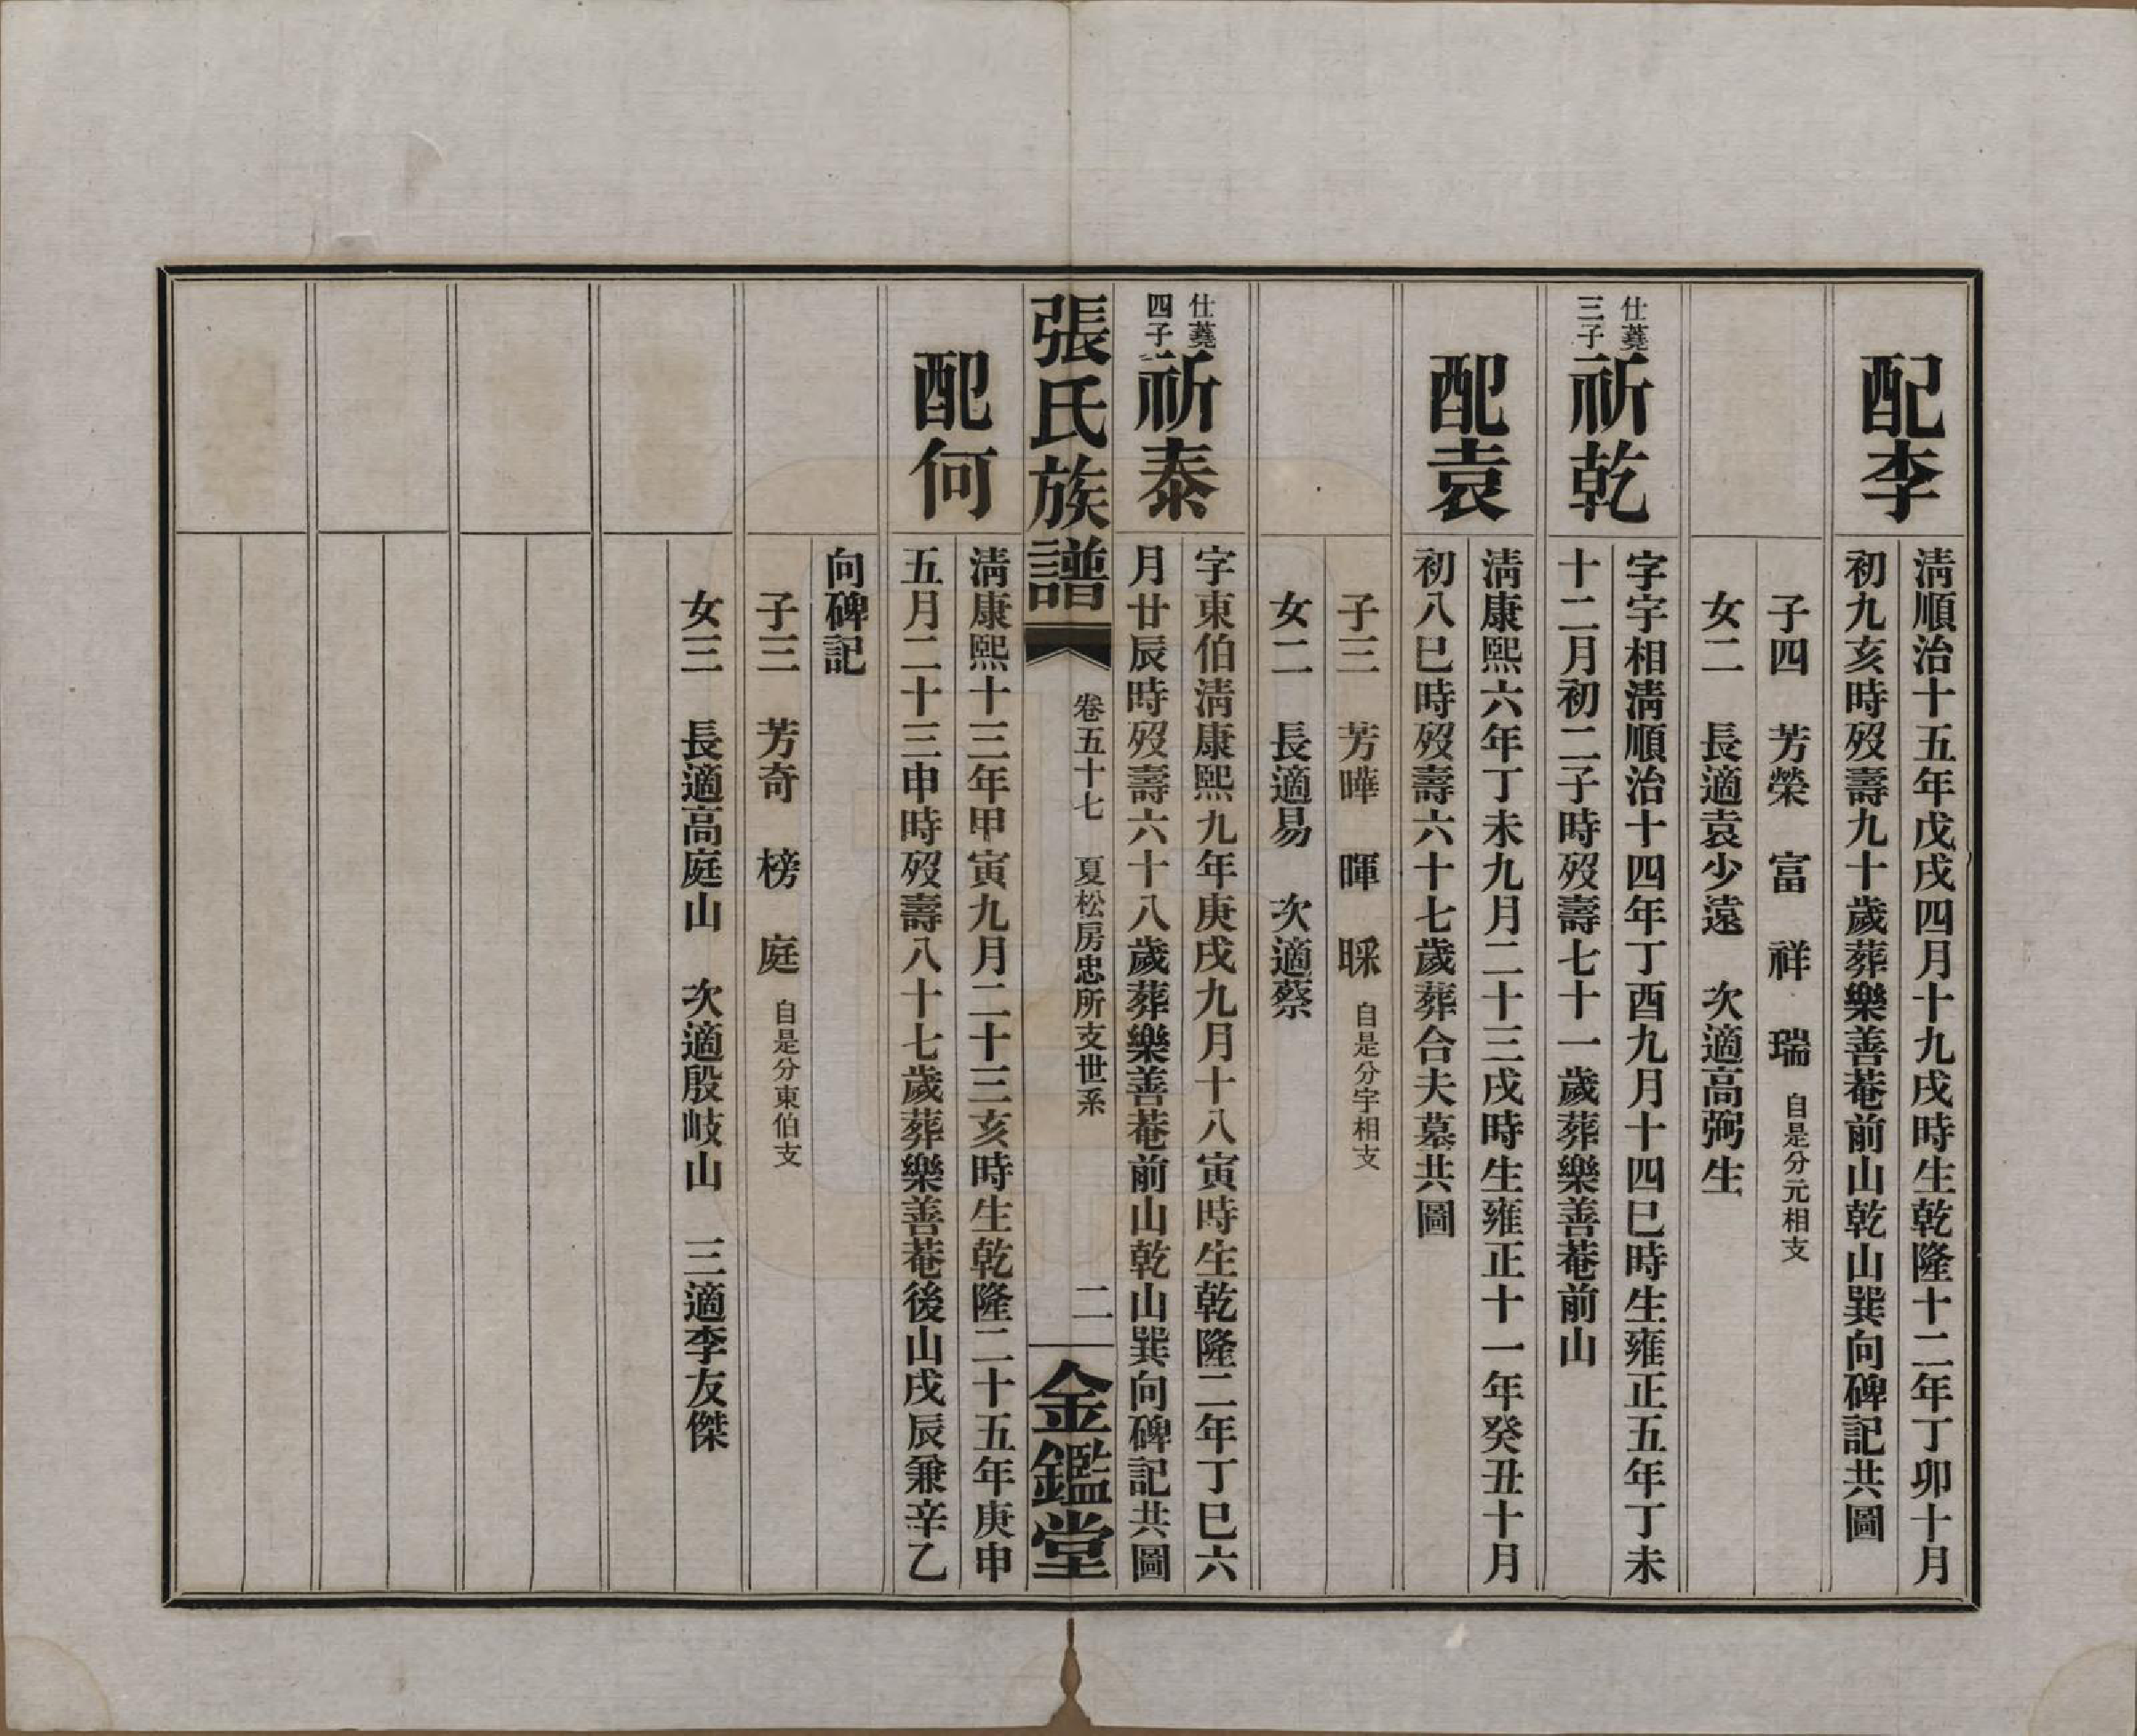 配李
淸順治十五年戊戌四月十九戌時生乾隆十二年丁卯十月
初九亥時歿壽九十歲葬樂善菴前山乾山巽向碑記共圖
子四　芳榮　富　祥　瑞　自是分元相支
女二　長適袁少遠　次適高弼生
仕蕘
三子
祈乾
字宇相淸順治十四年丁酉九月十四巳時生雍正五年丁未
十二月初二子時歿壽七十一歲葬樂善菴前山
配袁
淸康熙六年丁未九月二十三戌時生雍正十一年癸丑十月
初八巳時歿壽六十七歲葬合夫墓共圖
子三　芳曄　暉　睬　自是分宇相支
女二　長適易　次適蔡
仕蕘
四子
祈泰
字東伯淸康熙九年庚戌九月十八寅時生乾隆二年丁巳六
月廿辰時歿壽六十八歲葬樂善菴前山乾山巽向碑記共圖
張氏族譜
卷五十七　夏松房忠所支世系
二
金鑑堂
配何
淸康熙十三年甲寅九月二十三亥時生乾隆二十五年庚申
五月二十三申時歿壽八十七歲葬樂善菴後山戌辰兼辛乙
向碑記
子三　芳奇　榜　庭　自是分東伯支
女三　長適高庭山　次適殷岐山　三適李友傑